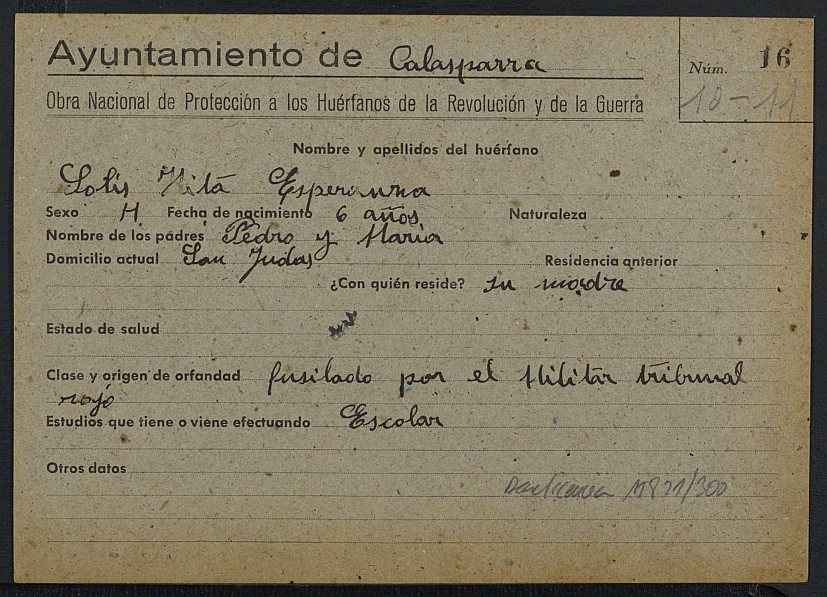 Ayuntamiento de Calasparra
Núm. 16
10-11
Obra Nacional de Protección a los Huérfanos de la Revolución y de la Guerra
Nombre y apellidos del huérfano
Solis Hita Esperanza
Sexo H Fecha de nacimiento 6 años Naturaleza
Nombre de los padres Pedro y Maria
Domicilio actual San Judas Residencia anterior
¿Con quién reside? su madre
Estado de salud
Clase y origen de orfandad fusilado por el Militar tribunal
rojo
Estudios que tiene o viene efectuando Escolar
Otros datos
1821/300